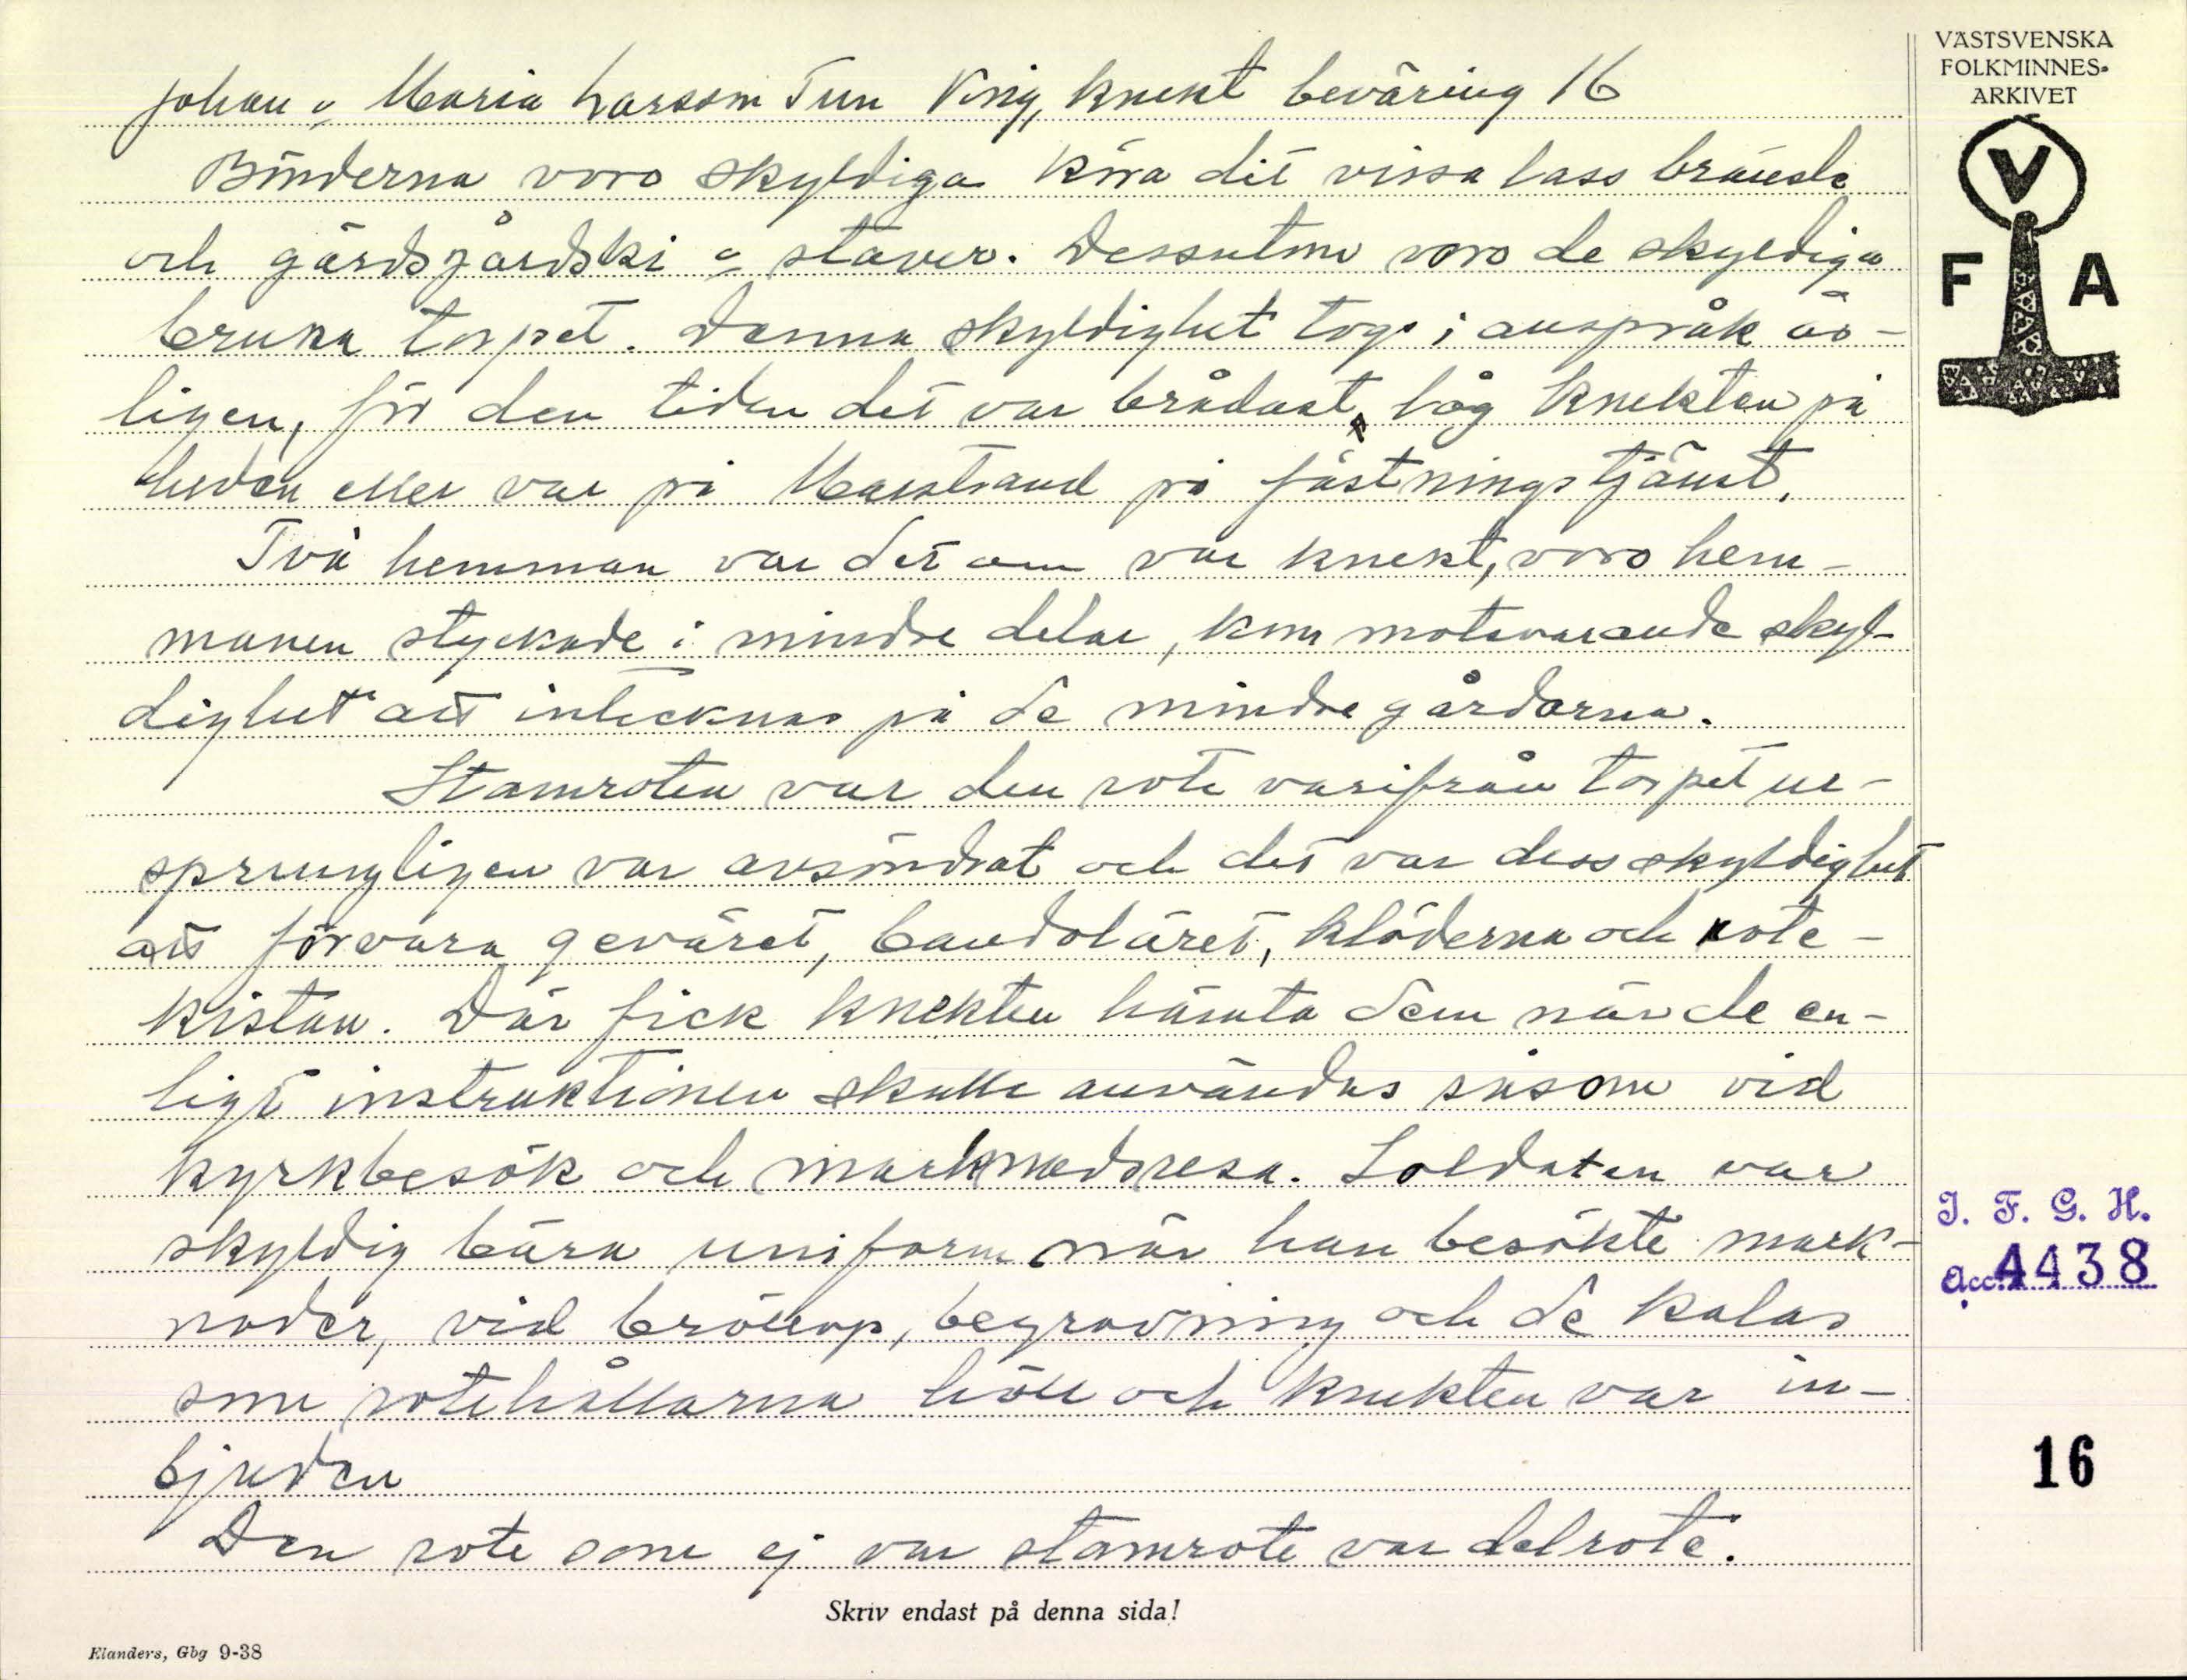 Johan o Maria Larsson Tun Ving, knekt beväring 16
Bönderna voro skyldiga köra dit vissa lass bränsle
och gärdsgårdski o stäver. Dessutom voro de skyldiga
bruka torpet. Denna skyldighet togs i anspråk år-
ligen, för den tiden det var brådast, låg knekten på
heden eller var på Marstrand på fästningstjänst.
Två hemman var det om var knekt, voro hem-
manen styckade i mindre delar, kom motsvarande skyl-
dighet att intecknas på de mindre gårdarna.
Stamroten var den rote varifrån torpet ur-
sprungligen var avsöndrat och det var dess skyldighet
att förvara geväret, bandoläret, kläderna och rote-
kistan. Där fick knekten hämta dem när de en-
ligt instruktionen skulle användas såsom vid
kyrkbesök och marknadsresa. Soldaten var
skyldig bära uniform när han besökte mark-
nader, vid bröllop, begravning och de kalas
som rotehållarna höll och knekten var in-
bjuden
Den rote som ej var stamrote var delrote.
Skriv endast på denna sida!
Elanders, Gbg 9-38
VÄSTSVENSKA
FOLKMINNES-
ARKIVET
V
F A
I. F. G. H.
Acc. 4438
16